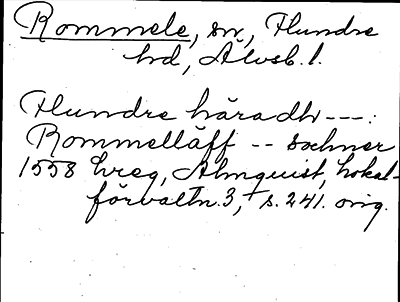 Rommele, sn, Flundre
hd, Älvsb. l.
Flundre häradh ---:
Rommelläff -- sochner
1558 hreg, Almquist, Lokal-
förvaltn. 3, s. 241. orig.